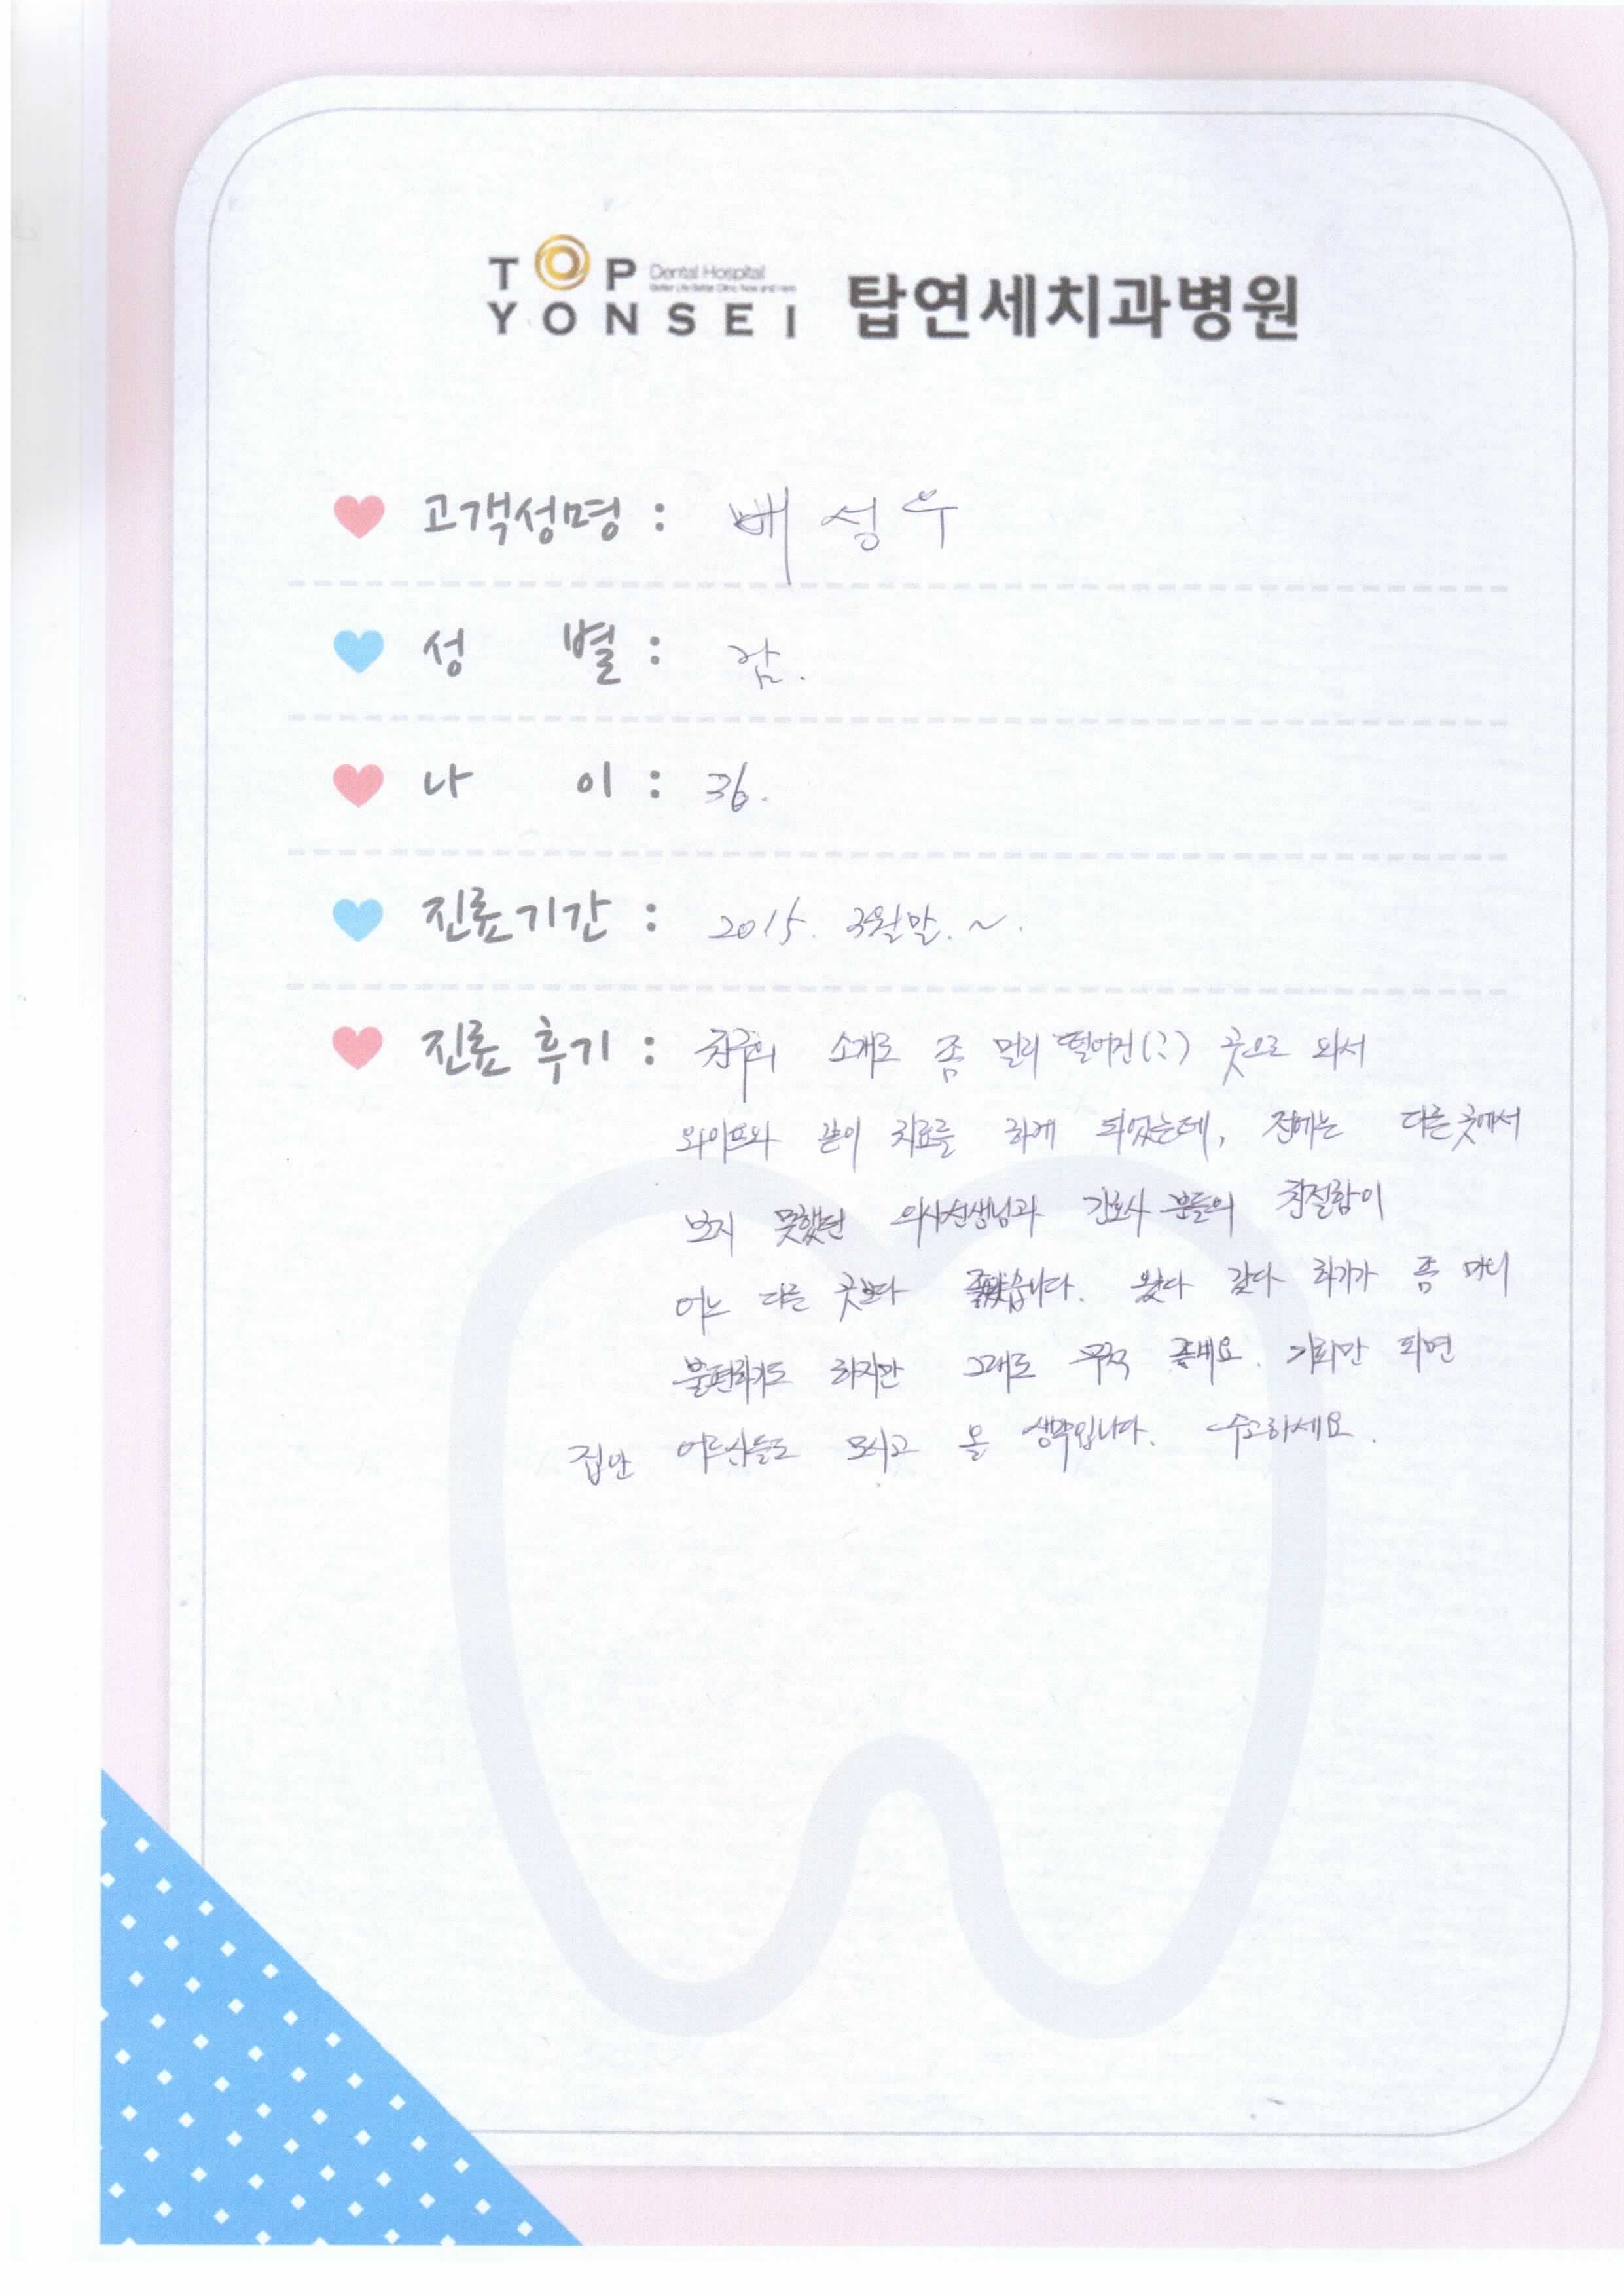 TOP Dental Hospital
Better Life Better Clinic Now and Here
YONSEI 탑연세치과병원
고객성명 : 배성우
성 별 : 남.
나 이 : 36.
진료기간 : 2015. 3월말. ~.
진료 후기 : 친구의 소개로 좀 멀리 떨어진(??) 곳으로 와서
와이프와 같이 치료를 하게 되었는데, 전에는 다른곳에서
보지 못했던 의사선생님과 간호사 분들의 친절함이
어느 다른 곳보다 좋았습니다. 왔다 갔다 하기가 좀 많이
불편하기도 하지만 그래도 무척 좋네요. 기회만 되면
집안 어르신들도 모시고 올 생각입니다. 수고하세요.